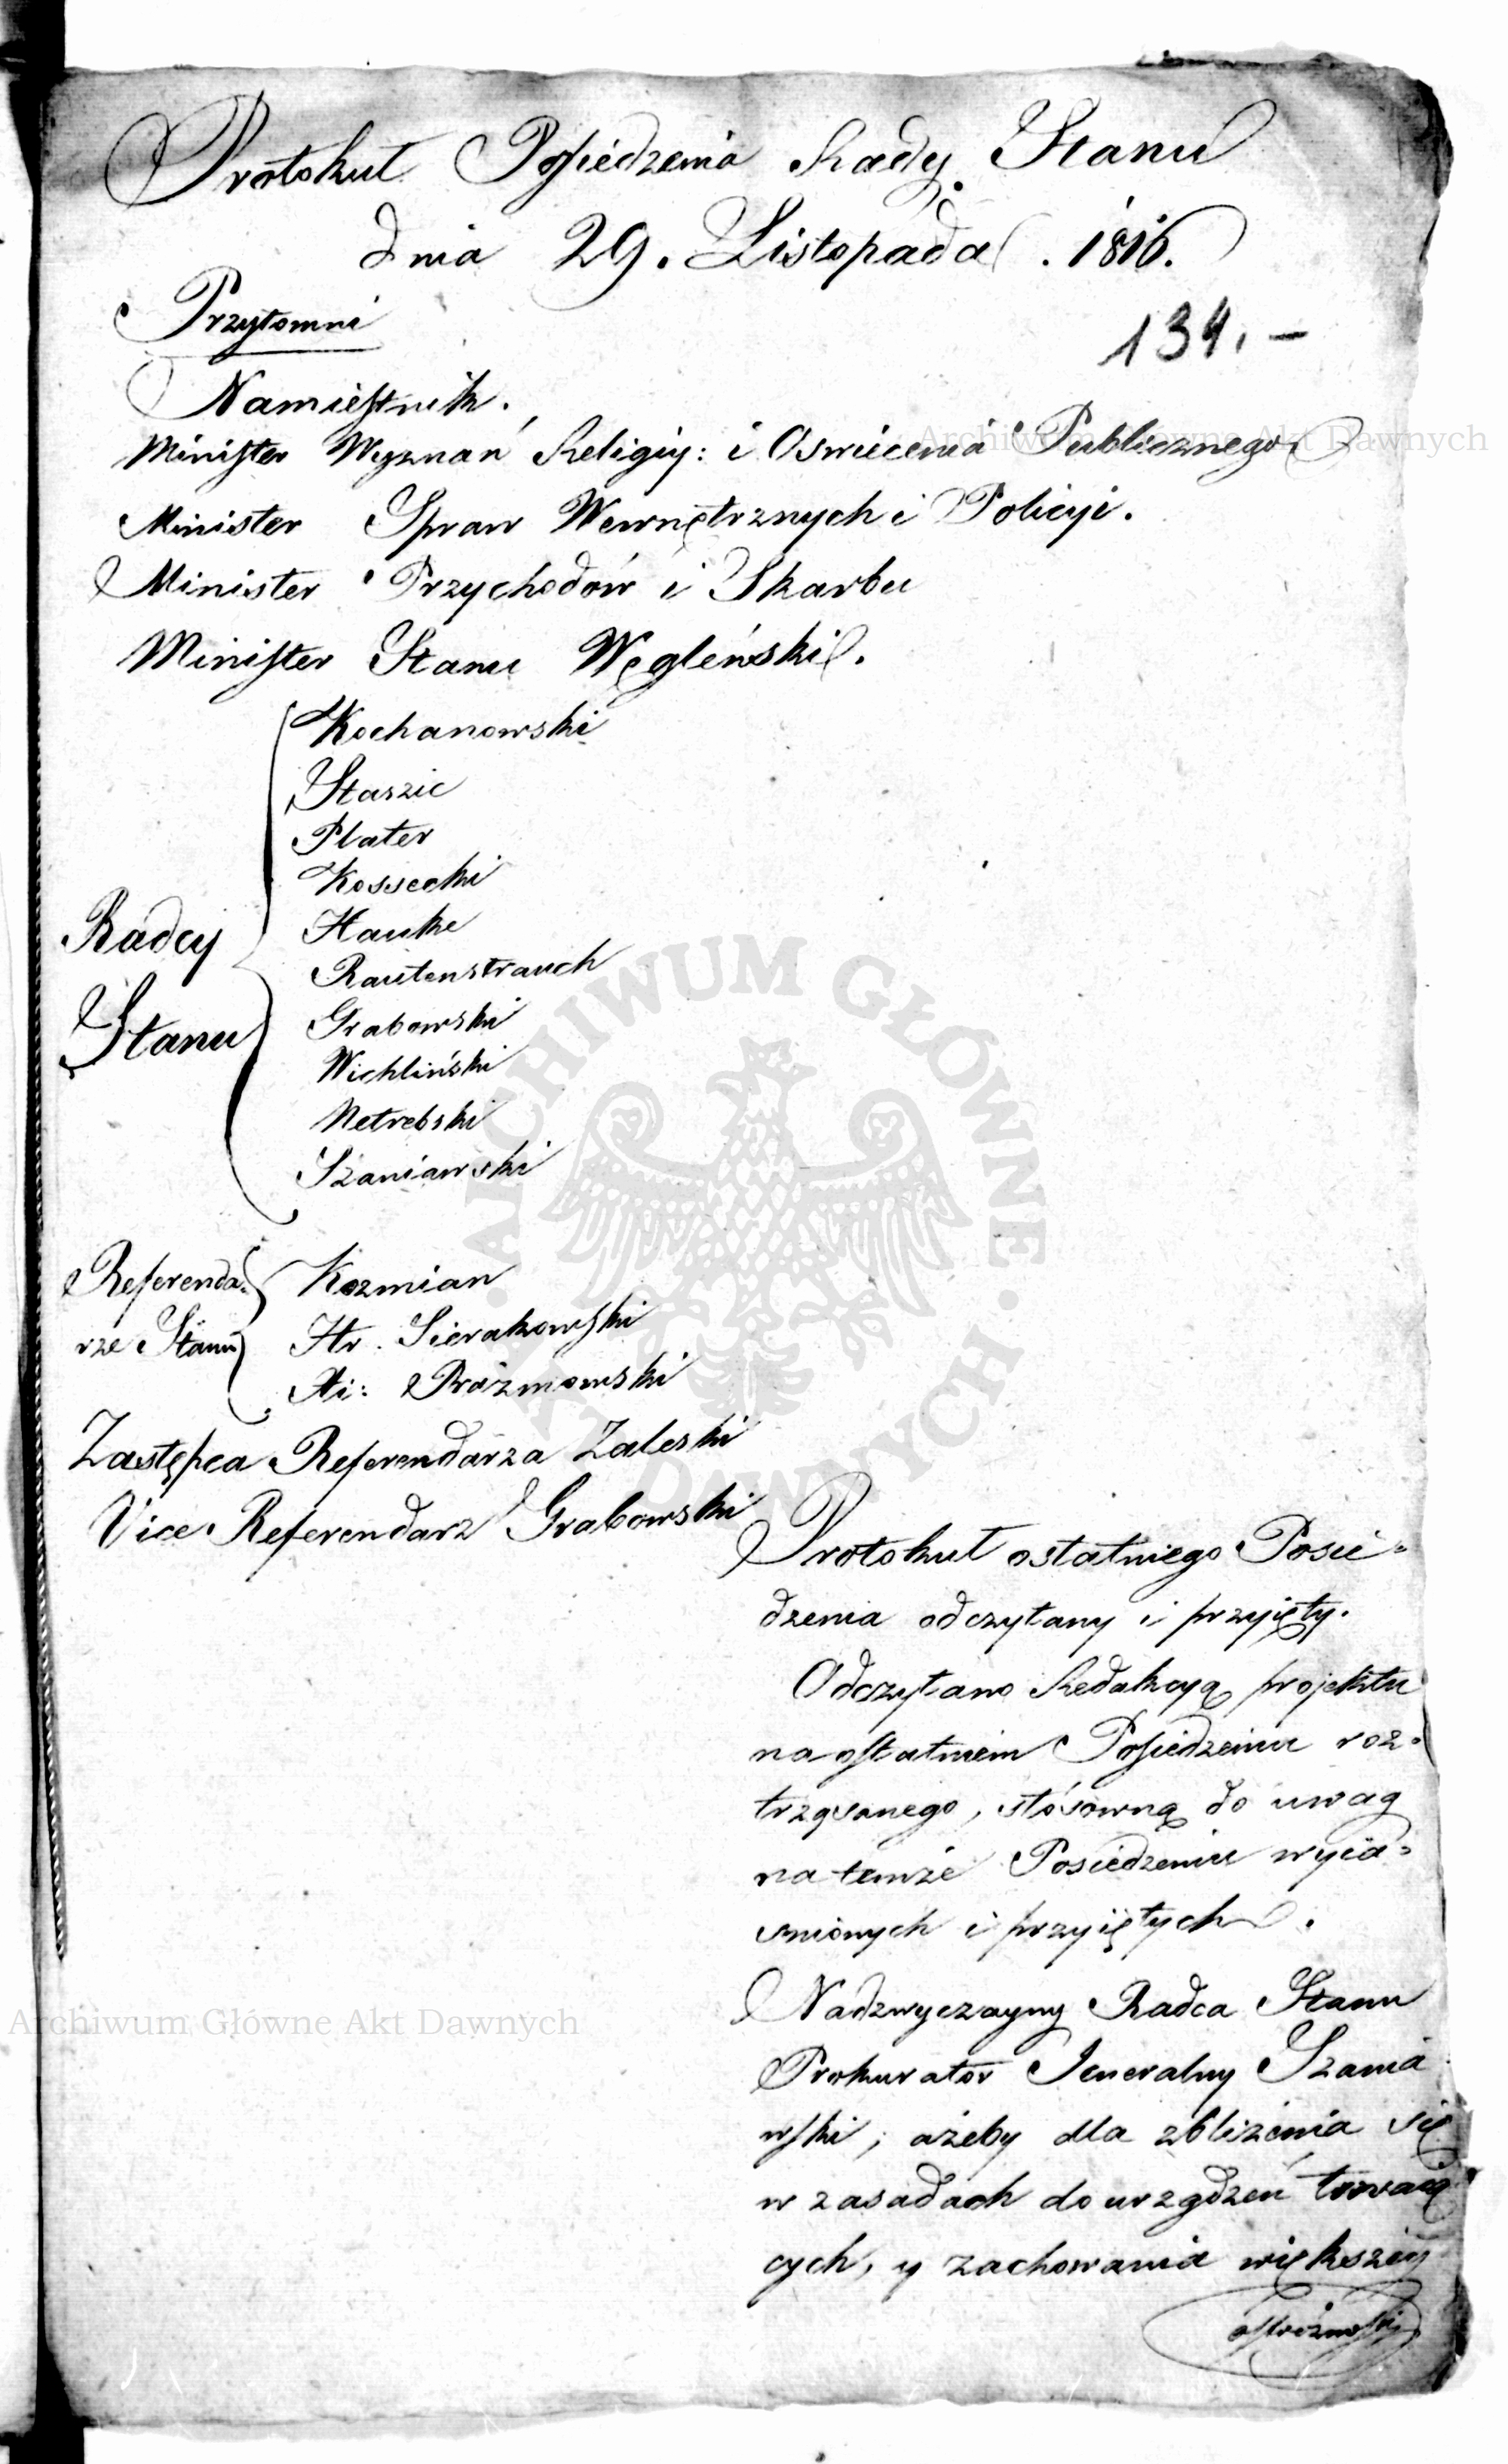 Protokuł Posiedzenia Rady Stanu
dnia 29. Listopada. 1816.
134.-
Przytomni
Namiestnik.
Minister Wyznań Religiy: i Oswiecenia Publicznego
Minister Spraw Wewnętrznych i Policyi.
Minister Przychodów i Skarbu
Minister Stanu Węgleński.
Radcy
Stanu
Kochanowski
Staszic
Plater
Kossecki
Hauke
Rautenstrauch
Grabowski
Wichliński
Netrebski
Szaniawski
Referenda=
rze Stanu
Kozmian
Hr. Sierakowski
Prażmowski
Zastępca Referendarza Zaleski
Vice Referendarz Grabowski
Protokuł ostatniego Posie=
dzenia odczytany i przyięty.
Odczytano Redakcyą projektu
na ostatniem Posiedzeniu roz=
trząsanego, stósowną do uwag
na temże Posiedzeniu wyia=
snionych i przyiętych.
Nadzwyczayny Radca Stanu
Prokurator Jeneralny Szania
wski, ażeby dla zbliżenia się
w zasadach do urządzeń trwaią
cych, y zachowania większey
ostrożności
Archiwum Główne Akt Dawnych
Archiwum Główne Akt Dawnych
ARCHIWUM GŁÓWNE AKT DAWNYCH